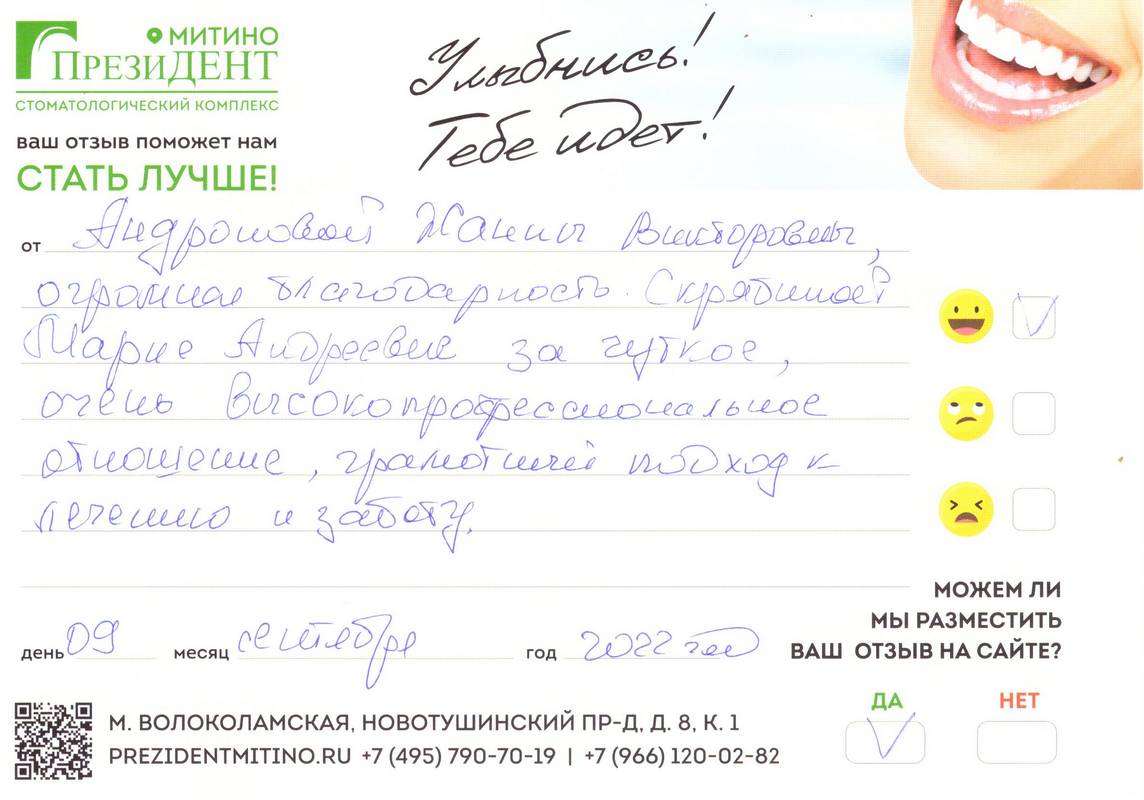 МИТИНО
ПРЕЗИДЕНТ
СТОМАТОЛОГИЧЕСКИЙ КОМПЛЕКС
ВАШ ОТЗЫВ ПОМОЖЕТ НАМ
СТАТЬ ЛУЧШЕ!
Улыбнись!
Тебе идет!
от Андроповой Жанны Викторовны,
огромная благодарность Скрябиной
Марие Андреевне за чуткое,
очень высокопрофессиональное
отношение, грамотный подход к
лечению и заботу.
день 09 месяц сентября год 2022 год
МОЖЕМ ЛИ
МЫ РАЗМЕСТИТЬ
ВАШ ОТЗЫВ НА САЙТЕ?
ДА НЕТ
М. ВОЛОКОЛАМСКАЯ, НОВОТУШИНСКИЙ ПР-Д, Д. 8, К. 1
PREZIDENTMITINO.RU +7 (495) 790-70-19 | +7 (966) 120-02-82